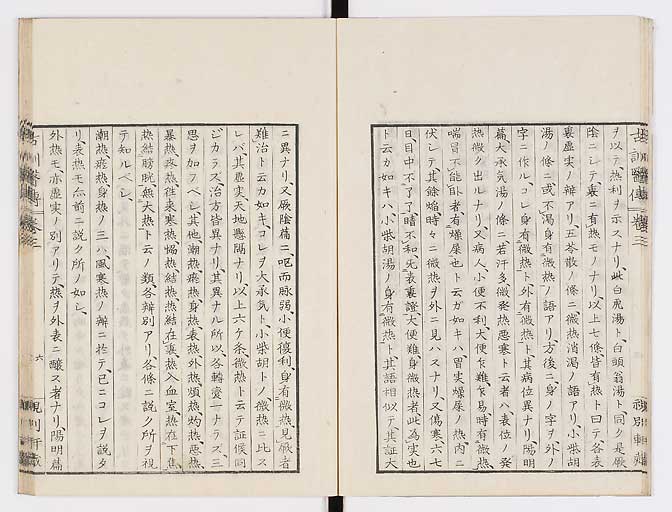 ヲ以テ、熱利ヲ示スナリ、此白虎湯ト白頭翁湯ト、同ク是厥
陰ニシテ、裏ニ有熱モノナリ、以上七條皆有熱ト曰テ、各表
裏虚実ノ辨アリ、五苓散ノ條ニ、微熱消渇ノ語アリ、小柴胡
湯ノ條ニ、或不渇身有微熱ノ語アリ、方後ニ身ノ字ヲ外ノ
字ニ作ル、コレ身有微熱ト、外有微熱ト、其病位異ナリ、陽明
篇、大承気湯ノ條ニ、若汗多微発熱悪寒ト云者ハ、表位ノ発
熱微ク出ルナリ、又病人小便不利、大便乍難乍易、時有微熱、
喘冒不能臥者、有燥屎也ト云ガ如キハ、胃実燥屎ノ熱、内ニ
伏シテ、其餘焔時々ニ微熱ヲ外ニ見ハスナリ、又傷寒六七
日、目中不了了、睛不和、无表裏證、大便難、身微熱者、此為実也
ト云ガ如キハ、小柴胡湯ノ身有微熱ト、其語相似テ、其証大
ニ異ナリ、又厥陰篇ニ、嘔而脉弱、小便復利、身有微熱、見厥者
難治ト云ガ如キ、コレヲ大承気ト、小柴胡トノ微熱ニ比ス
レバ、其虚実天地懸隔ナリ、以上六ケ條、微熱ト云テ証候同
ジカラズ、治方皆異ナリ、其異ナル所以、各轉変一ナラズ、三
思ヲ加フベシ、其他潮熱瘀熱身熱表熱外熱煩熱灼熱悪熱
暴熱疼熱往来寒熱惕熱結熱熱結在裏熱入血室熱在下焦
熱結膀胱無大熱ト云ノ類、各辨別アリ、各條ニ説ク所ヲ視
テ知ルベシ、
潮熱瘀熱身熱ノ三ハ、風寒熱ノ辨ニ於テ、已ニコレヲ説タ
リ、表熱モ亦前ニ説ク所ノ如シ、
外熱モ亦虚実ノ別アリテ、熱ヲ外表ニ醸ス者ナリ、陽明篇